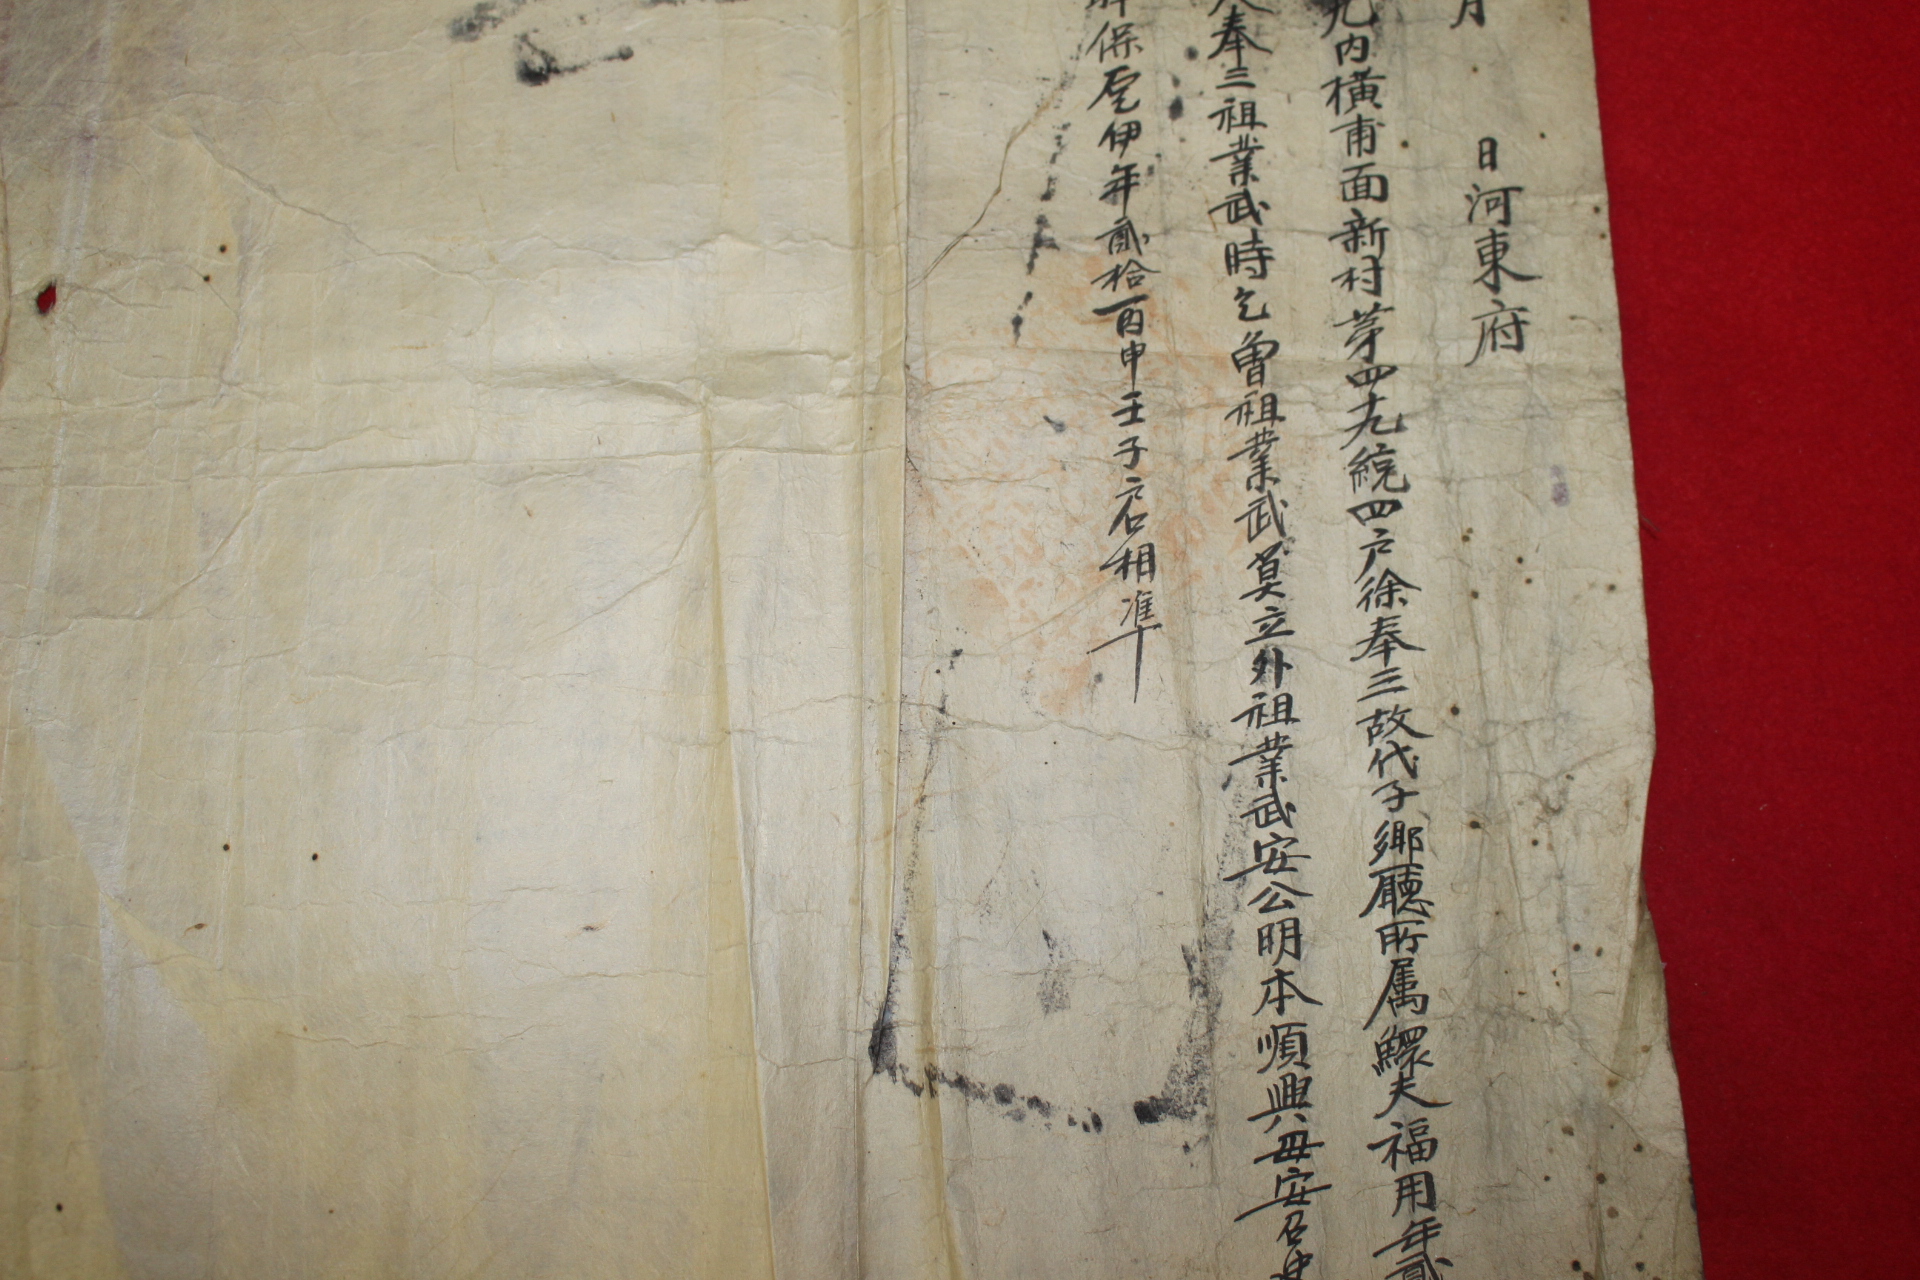 月 日河東府
內橫甫面新村第四十九統四戶徐奉三故代子鄉廳所属鰥夫福用年貳
奉三祖業武時乞曾祖業武莫立外祖業武安公明本順興母安召史
保 伊年貳拾 甲壬子戶口相準